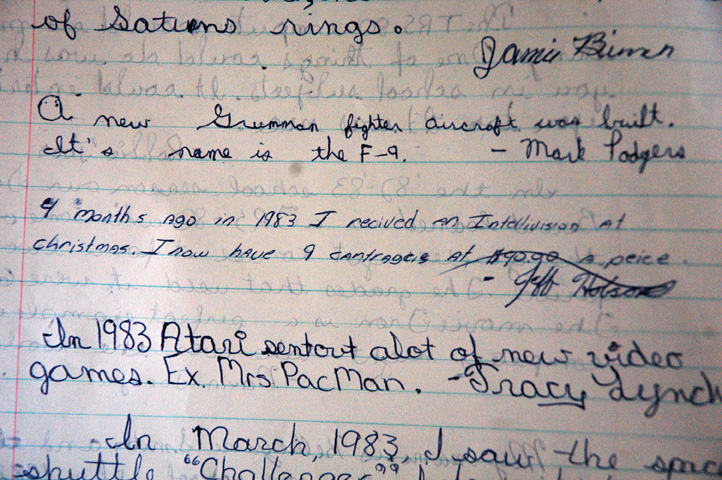 of Saturns rings.
Jamie
A new Grumman fighter aircraft was built.
It's name is the F-9. - Mark Podgers
4 months ago in 1983 I recived an Intellivision at
christmas. I now have 9 cantrages at $90.90 a peice.
- Jeff
In 1983 Atari sentout alot of new video
games. Ex. Mrs PacMan. -Tracy Lynch
In March, 1983, I saw the spac
shuttle "Challenger"